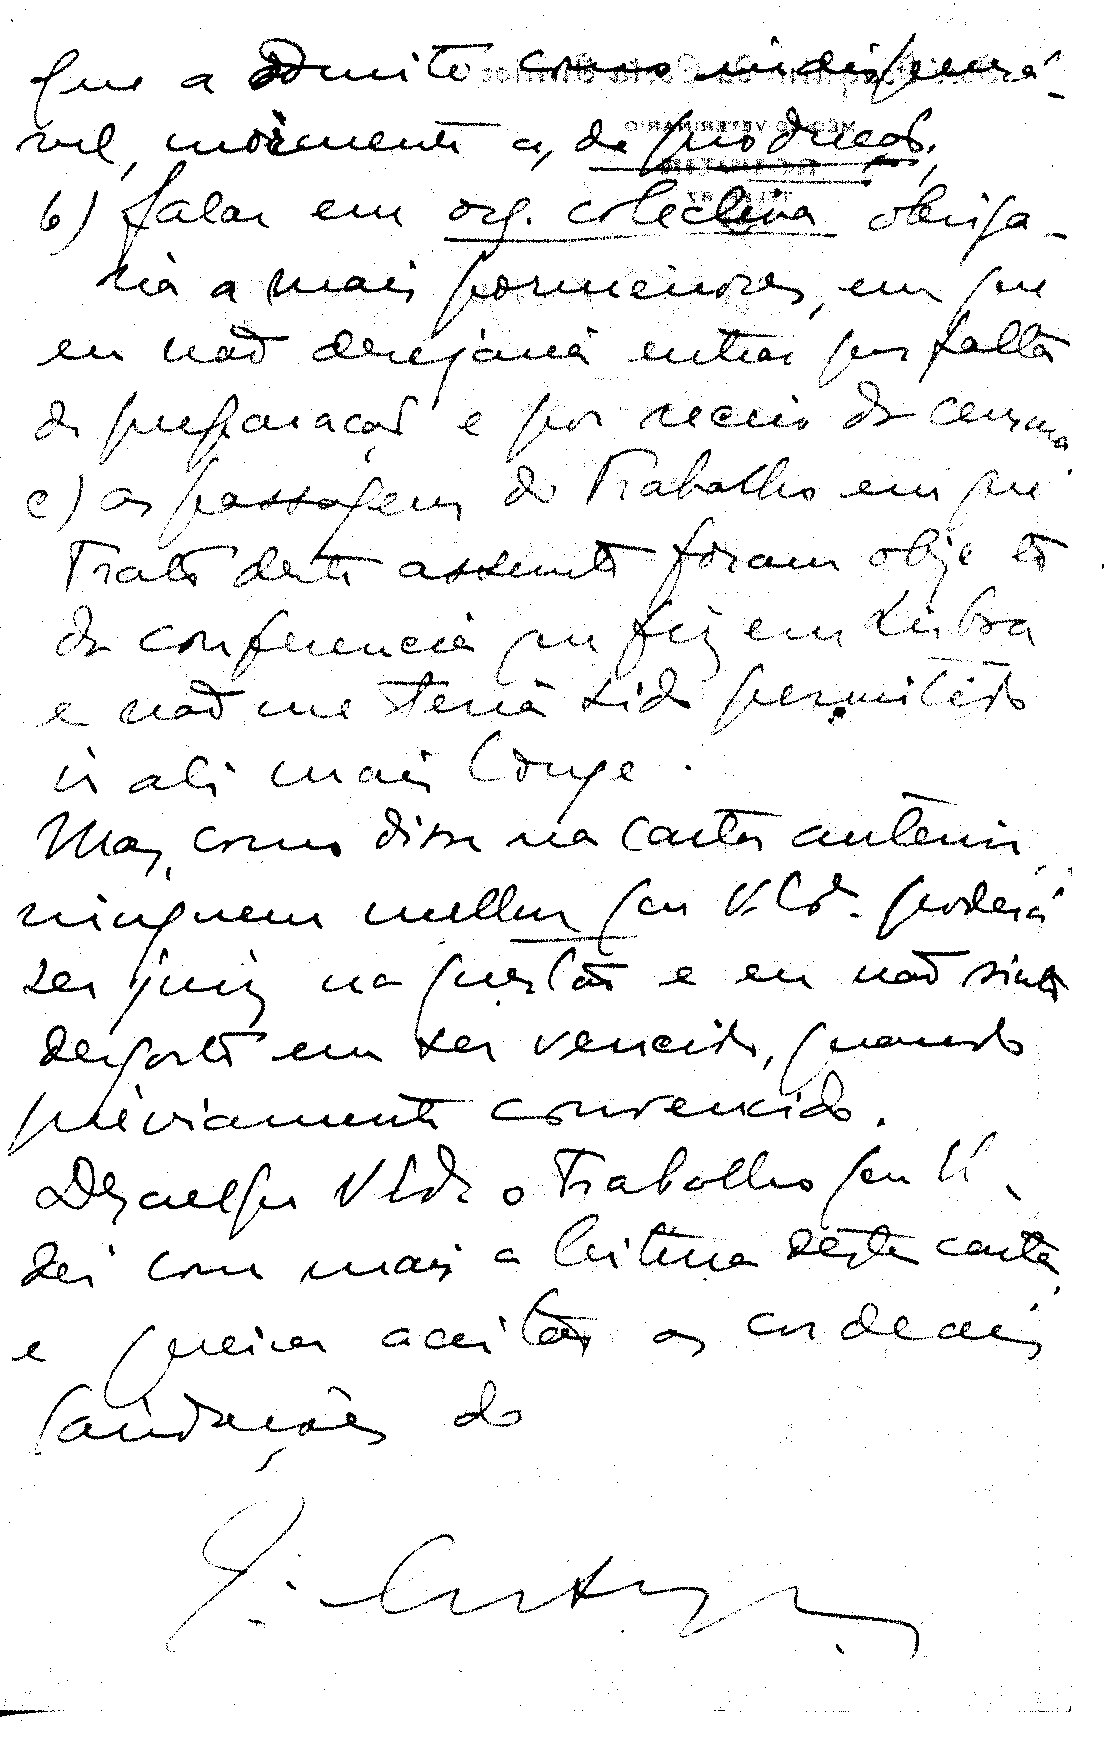 que a admito como indispensá-
vel, mòrmente a, de produção;
b) falar em org. colectiva obriga-
ria a mais pormenores, em que
eu não desejaria entrar por falta
de preparação e por receio da censura
c) as passagens do Trabalho em que
trato deste assunto foram objeto
da conferencia que fiz em Lisboa
e não me teria sido permitido
ir ali mais longe.
Mas, como disse na carta anterior,
ninguem melhor que V. poderá
ser juiz na questão e eu não sinto
desgosto em ser vencido, quando
préviamente convencido.
Desculpe o trabalho que lhe
dei com mais a leitura desta carta
e queira aceitar as cordeais
saüdações do